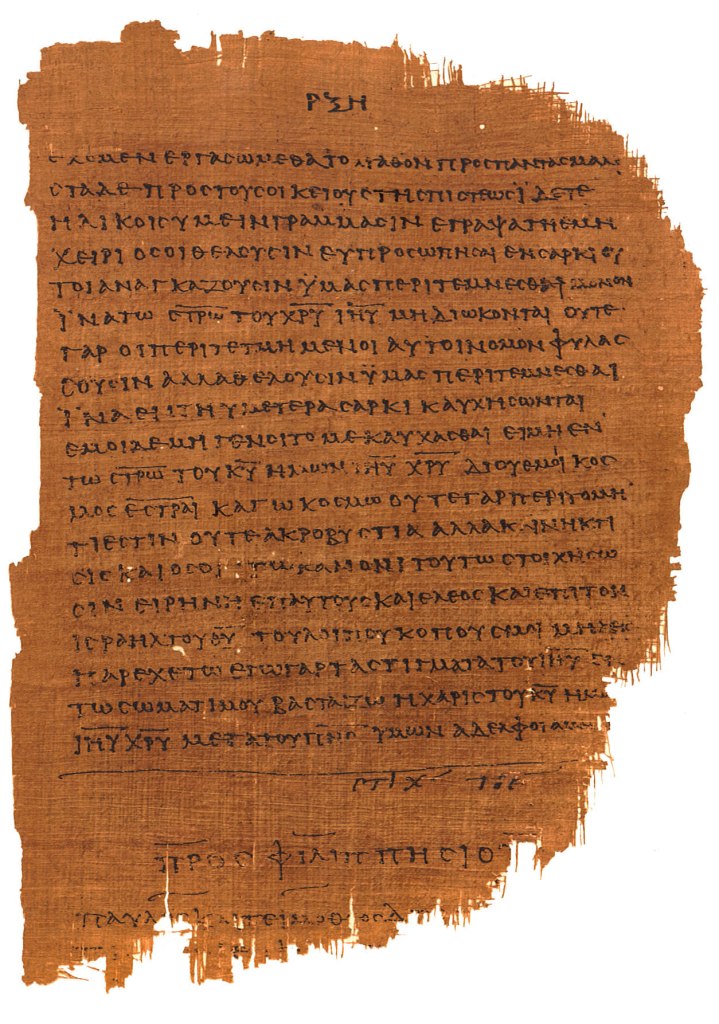 ΡΞΗ
ΕΧΟΜΕΝ ΕΡΓΑϹΩΜΕΘΑ ΤΟ ΑΓΑΘΟΝ ΠΡΟϹ ΠΑΝΤΑϹ ΜΑΛΙ
ϹΤΑ ΔΕ ΠΡΟϹ ΤΟΥϹ ΟΙΚΕΙΟΥϹ ΤΗϹ ΠΙϹΤΕΩϹ ΪΔΕΤΕ
ΗΛΙΚΟΙϹ ΥΜΕΙΝ ΓΡΑΜΜΑϹΙΝ ΕΓΡΑΨΑ ΤΗ ΕΜΗ
ΧΕΙΡΙ ΟϹΟΙ ΘΕΛΟΥϹΙΝ ΕΥΠΡΟϹΩΠΗϹΑΙ ΕΝ ϹΑΡΚΙ ΟΥ
ΤΟΙ ΑΝΑΓΚΑΖΟΥϹΙΝ ΫΜΑϹ ΠΕΡΙΤΕΜΝΕϹΘΑΙ ΜΟΝΟΝ
ΪΝΑ ΤΩ Ϲ̅Τ̅Ρ̅Ω̅ ΤΟΥ Χ̅Ρ̅Υ̅ Ι̅Η̅Υ̅ ΜΗ ΔΙΩΚΟΝΤΑΙ ΟΥΤΕ
ΓΑΡ ΟΙ ΠΕΡΙΤΕΤΜΗΜΕΝΟΙ ΑΥΤΟΙ ΝΟΜΟΝ ΦΥΛΑϹ
ϹΟΥϹΙΝ ΑΛΛΑ ΘΕΛΟΥϹΙΝ ΫΜΑϹ ΠΕΡΙΤΕΜΝΕϹΘΑΙ
ΪΝΑ ΕΝ ΤΗ ΥΜΕΤΕΡΑ ϹΑΡΚΙ ΚΑΥΧΗϹΩΝΤΑΙ
ΕΜΟΙ ΔΕ ΜΗ ΓΕΝΟΙΤΟ ΜΕ ΚΑΥΧΑϹΘΑΙ ΕΙ ΜΗ ΕΝ
ΤΩ Ϲ̅Τ̅Ρ̅Ω̅ ΤΟΥ Κ̅Υ̅ ΗΜΩΝ Ι̅Η̅Υ̅ Χ̅Ρ̅Υ̅ ΔΙ ΟΥ ΕΜΟΙ ΚΟϹ
ΜΟϹ Ε̅Ϲ̅Τ̅Ρ̅Α̅Ι̅ ΚΑΓΩ ΚΟϹΜΩ ΟΥΤΕ ΓΑΡ ΠΕΡΙΤΟΜΗ
ΤΙ ΕϹΤΙΝ ΟΥΤΕ ΑΚΡΟΒΥϹΤΙΑ ΑΛΛΑ ΚΑΙΝΗ ΚΤΙ
ϹΙϹ ΚΑΙ ΟϹΟΙ ΤΩ ΚΑΝΟΝΙ ΤΟΥΤΩ ϹΤΟΙΧΗϹΩ
ϹΙΝ ΕΙΡΗΝΗ ΕΠ ΑΥΤΟΥϹ ΚΑΙ ΕΛΕΟϹ ΚΑΙ ΕΠΙ ΤΟΝ
ΙϹΡΑΗΛ ΤΟΥ Θ̅Υ̅ ΤΟΥ ΛΟΙΠΟΥ ΚΟΠΟΥϹ ΜΟΙ ΜΗΔΕΙϹ
ΠΑΡΕΧΕΤΩ ΕΓΩ ΓΑΡ ΤΑ ϹΤΙΓΜΑΤΑ ΤΟΥ Ι̅Η̅Υ̅ ΕΝ
ΤΩ ϹΩΜΑΤΙ ΜΟΥ ΒΑϹΤΑΖΩ Η ΧΑΡΙϹ ΤΟΥ Κ̅Υ̅ ΗΜΩ
Ι̅Η̅Υ̅ Χ̅Ρ̅Υ̅ ΜΕΤΑ ΤΟΥ Π̅Ν̅Ϲ̅ ΫΜΩΝ ΑΔΕΛΦΟΙ ΑΜΗΝ
ϹΤΙΧ ΤΟΕ
ΠΡΟϹ ΦΙΛΙΠΠΗϹΙΟΥ
ΠΑΥΛΟϹ ΚΑΙ ΤΕΙΜΟΘΕΟϹ Δ